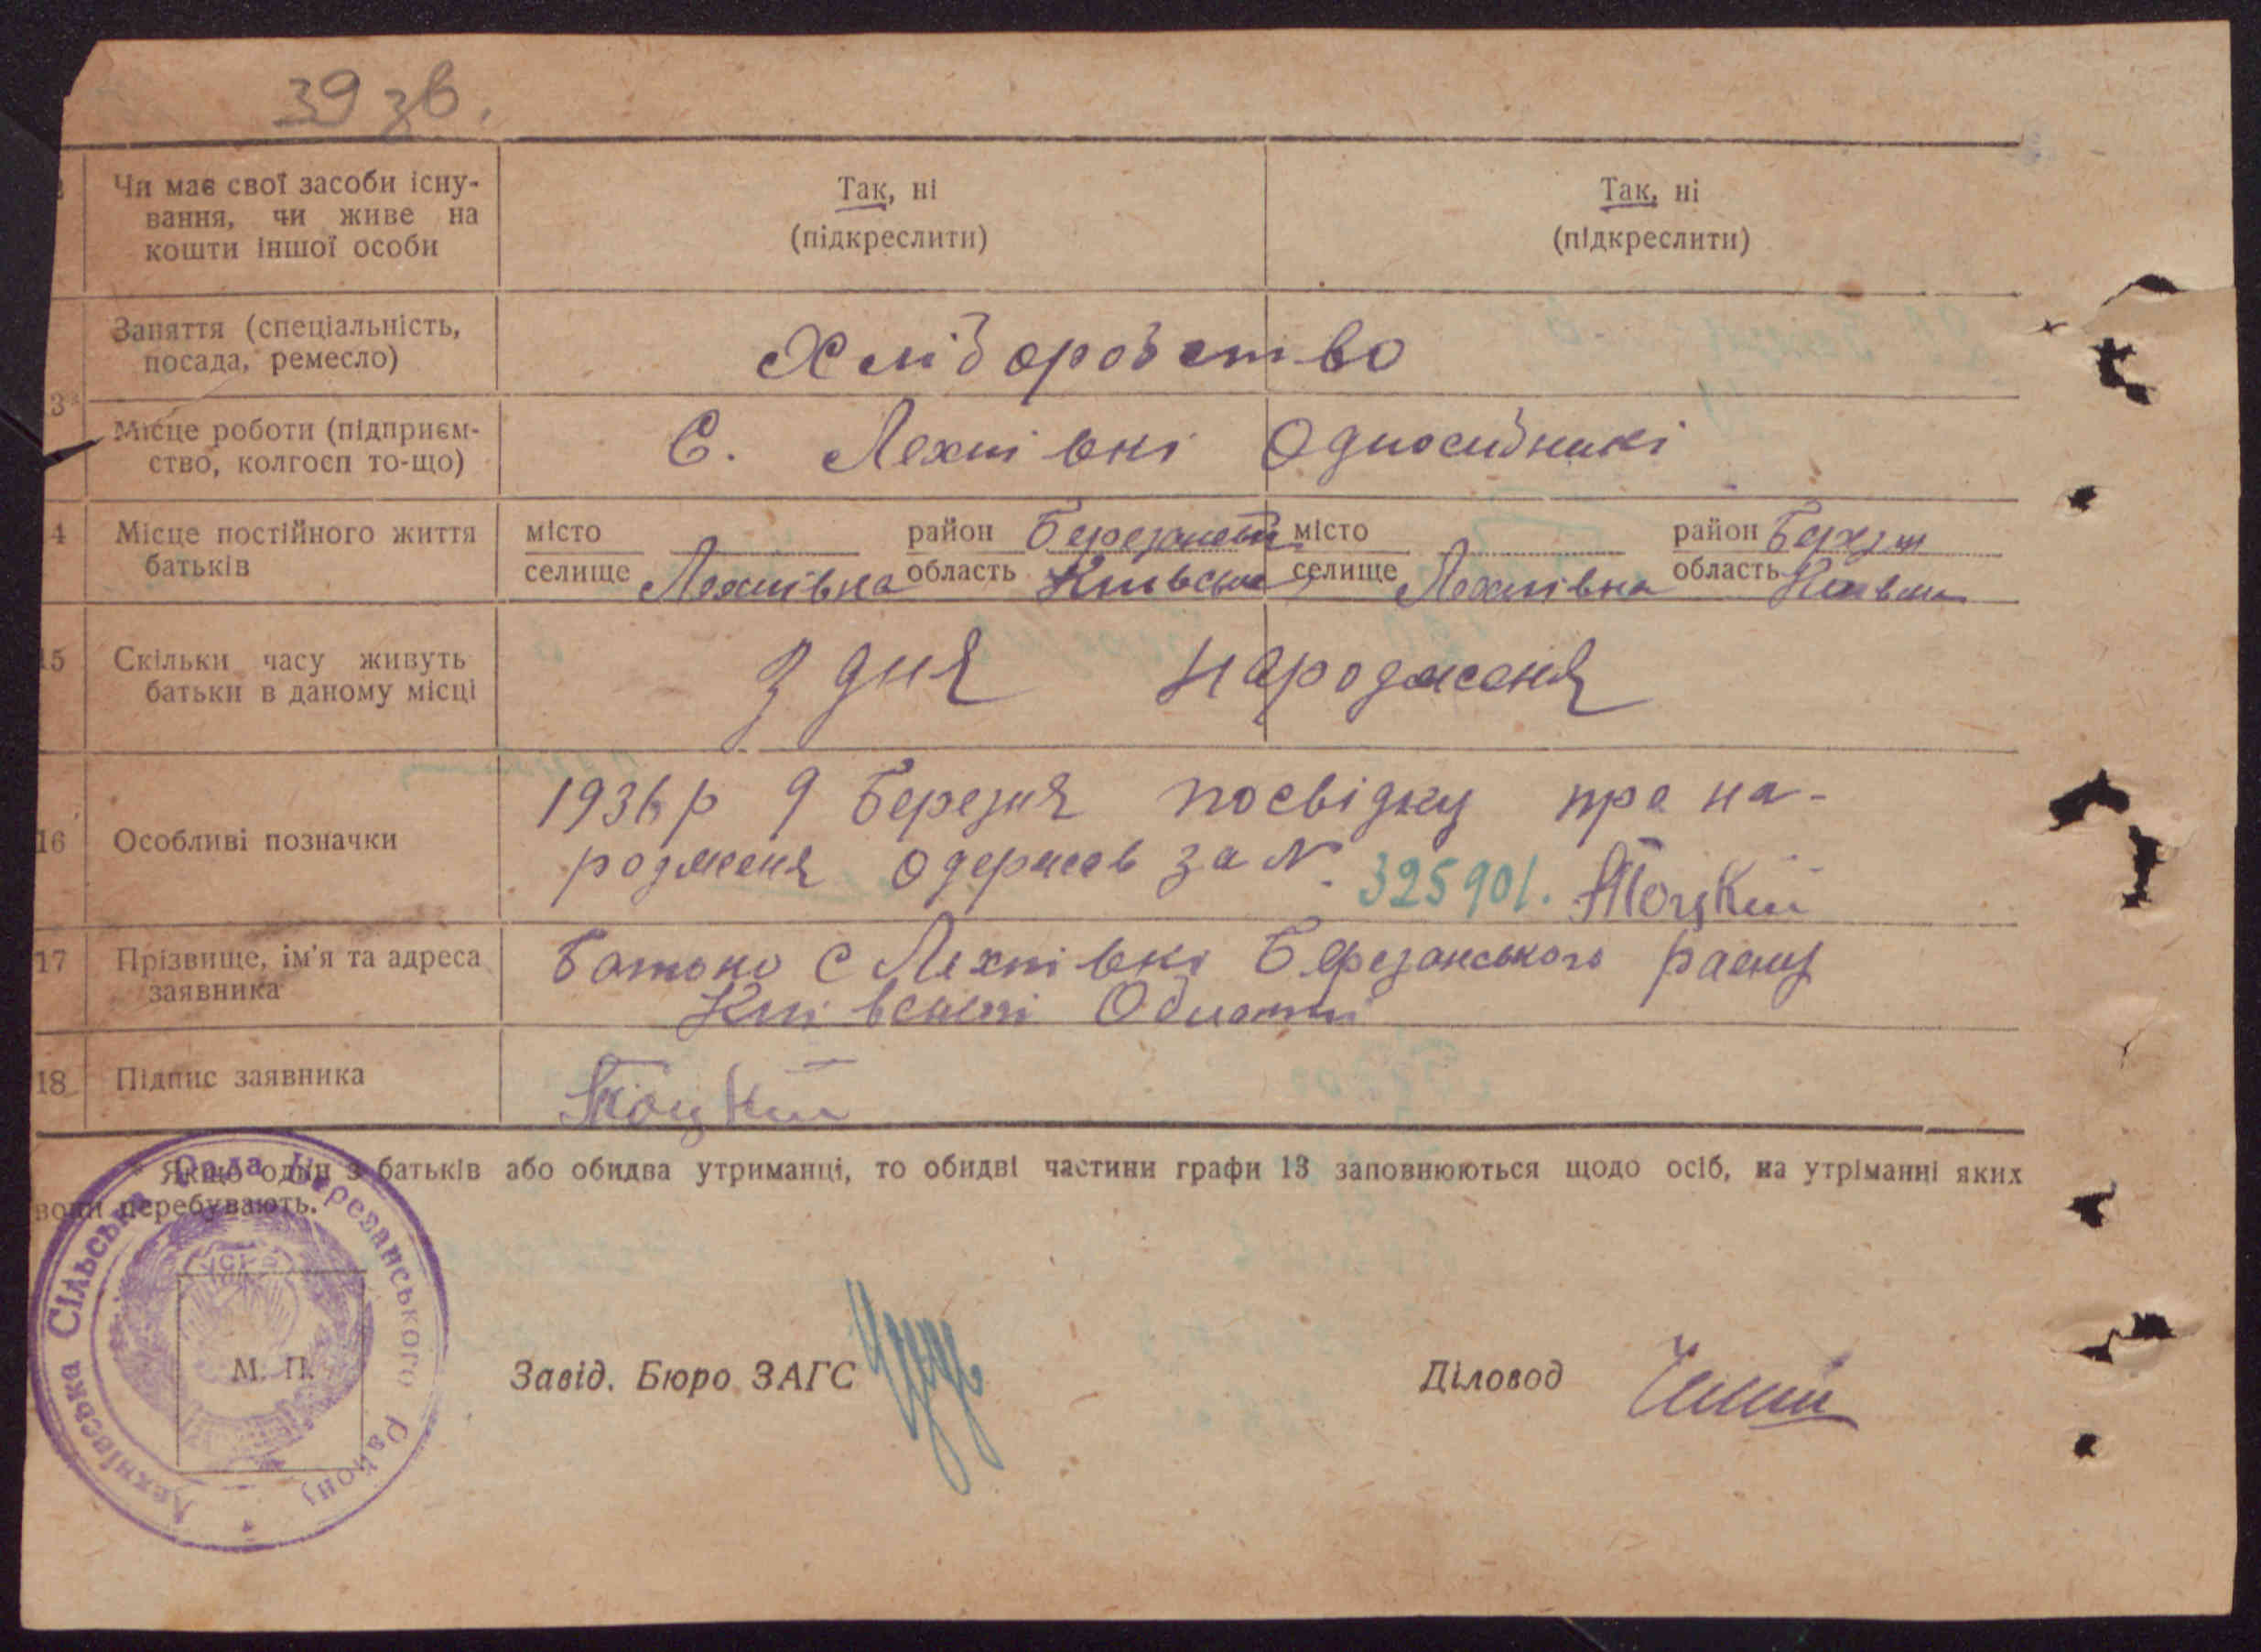 39 зв.
Чи має свої засоби існу-
вання, чи живе на
кошти іншої особи
Так, ні
(підкреслити)
Так, ні
(підкреслити)
Заняття (спеціальність,
посада, ремесло)
Хліборобство
13*
Місце роботи (підприєм-
ство, колгосп то-що)
С. Лехнівкі Односибникі
14 Місце постійного життя
батьків
місто район
селище Лехнівка область Київська
місто район Березан
селище Лехнівка область
15 Скільки часу живуть
батьки в даному місці
З дня народженя
16 Особливі позначки
1936 р 9 Березня посвідку про на-
родженя одержав за № 325901. Тоцкий
17 Прізвище, ім'я та адреса
заявника
Батько с Лехнівкі Березанського раену
Області
18 Підпис заявника
Тоцкий
* Якщо один з батьків або обидва утриманці, то обидві частини графи 13 заповнюються щодо осіб, на утріманні яких
вони перебувають.
Лехнівська Сільська Рада Березанського Району
УСРР
М. П.
Завід. Бюро ЗАГС
Діловод